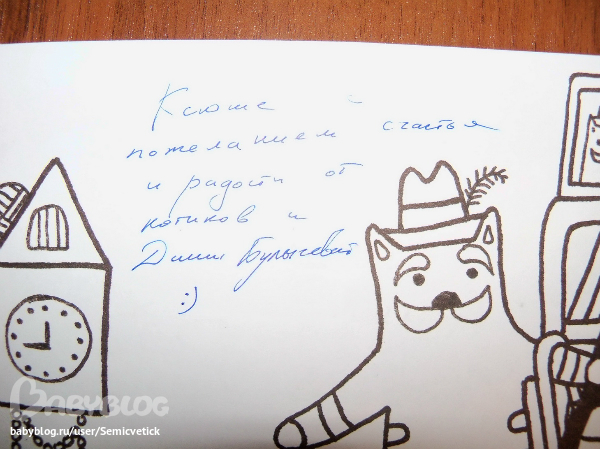 Ксюше с
пожеланием счастья
и радости от
котиков и
Дины Булычевой
:)
BABYBLOG
babyblog.ru/user/Semicvetick